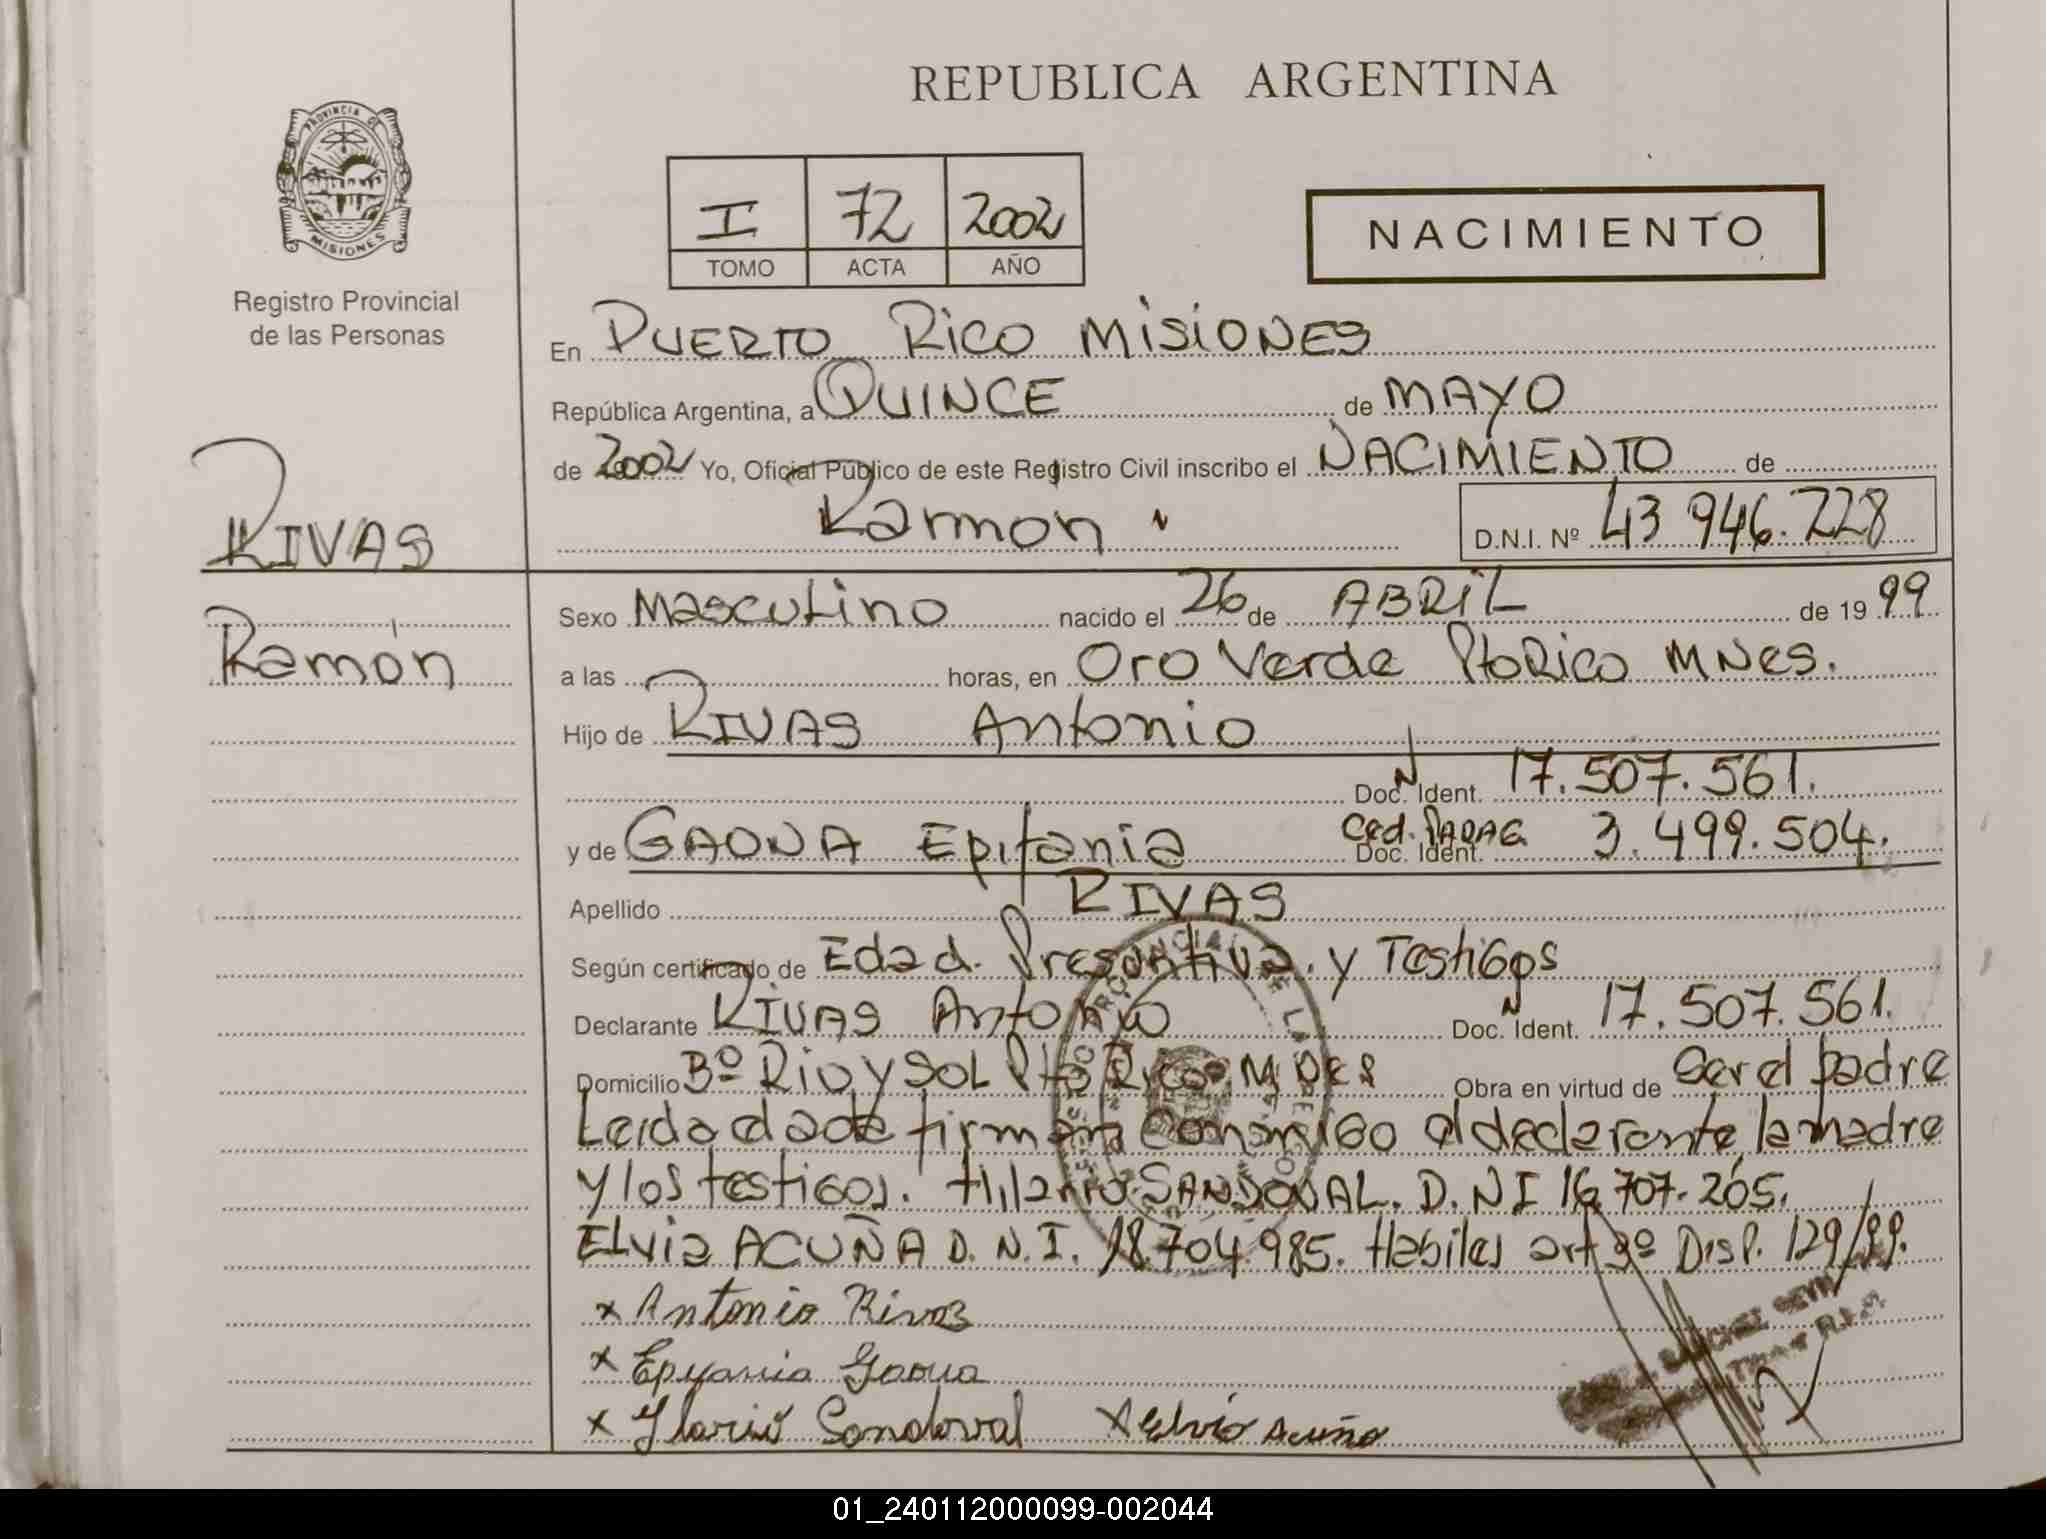 REPUBLICA ARGENTINA
PROVINCIA DE
MISIONES
Registro Provincial
de las Personas
I 72 2002
TOMO ACTA AÑO
NACIMIENTO
En PUERTO RICO MISIONES
República Argentina, a QUINCE de MAYO
de 2002 Yo, Oficial Público de este Registro Civil inscribo el NACIMIENTO de
Ramón
D.N.I. Nº 43 946.728
RIVAS
Ramón
Sexo Masculino nacido el 26 de ABRIL de 19 99
a las horas, en Oro Verde Pto Rico MNes.
Hijo de RIVAS Antonio
Doc. N Ident. 17.507.561.
y de GAONA Epifania Ced. PARAG. Doc. Ident. 3.499.504.
Apellido RIVAS
Según certificado de Edad. Presuntiva. y Testigos
Declarante RIVAS Antonio Doc. N Ident. 17.507.561.
Domicilio Bº Rio y SOL Pto Rico Obra en virtud de Ser el padre
Leida el acta firman conmigo el declarante, la madre
y los testigos. Hilario SANDOVAL. D.NI 16.707.265.
ELVIA ACUÑA D.N.I. 18.704.985. Habiles art 3º Disp. 129/99.
x Antonio Rivas
x Epifania Gaona
x Ylario Sandoval x Elvio Acuña
01_240112000099-002044